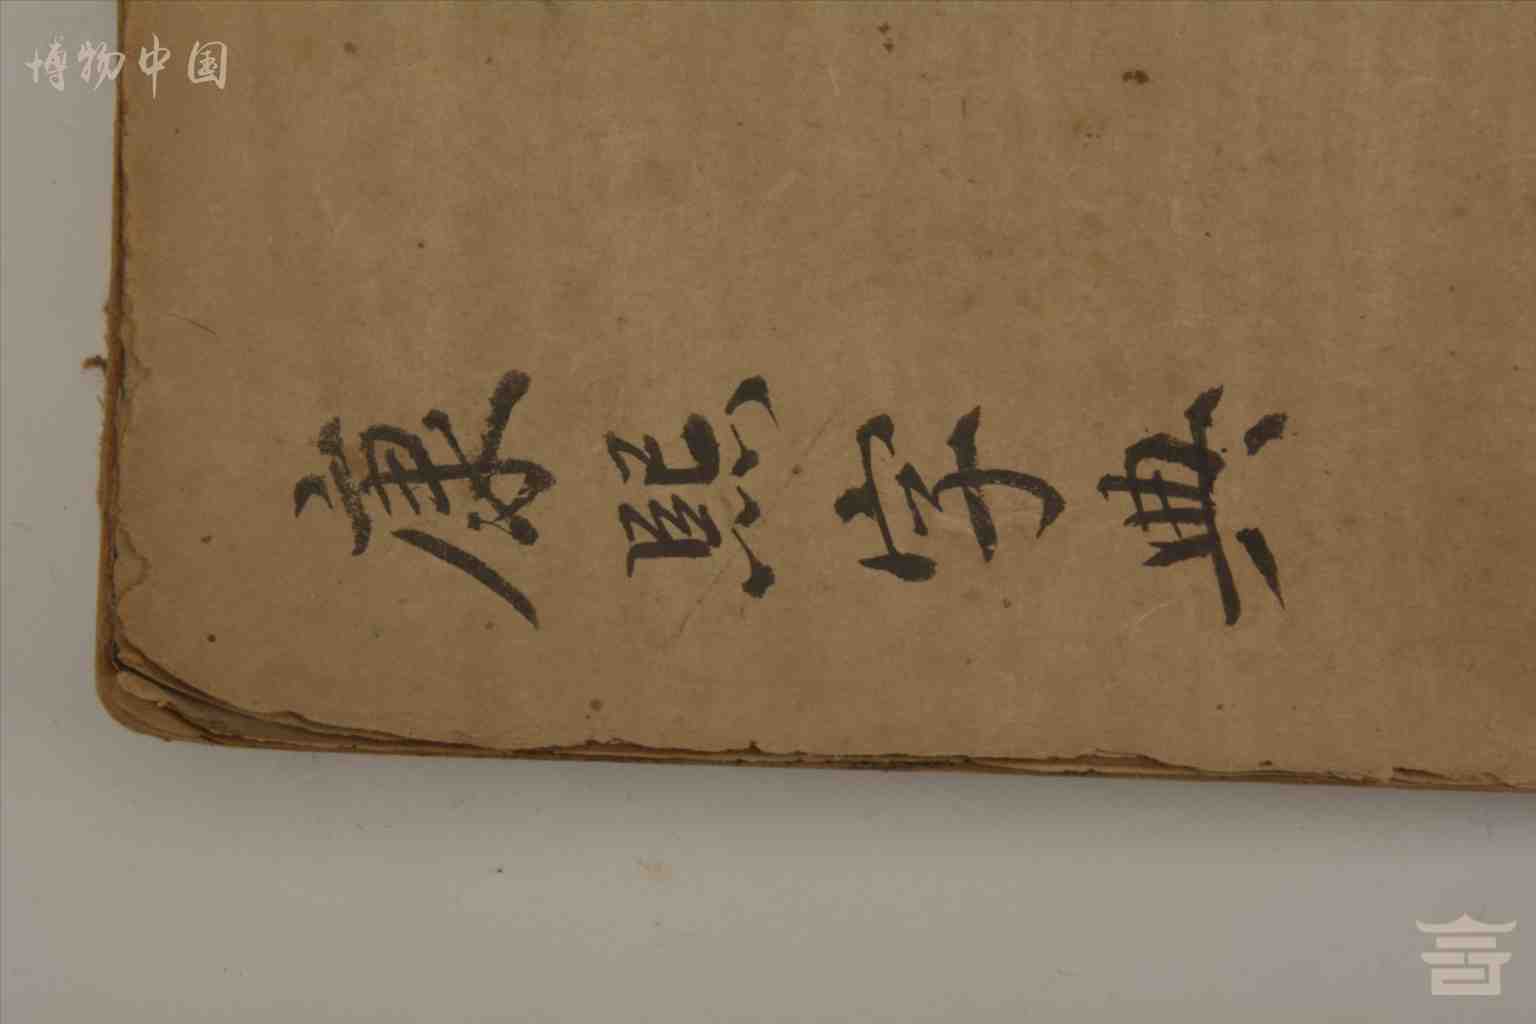 博物中国
康熙字典